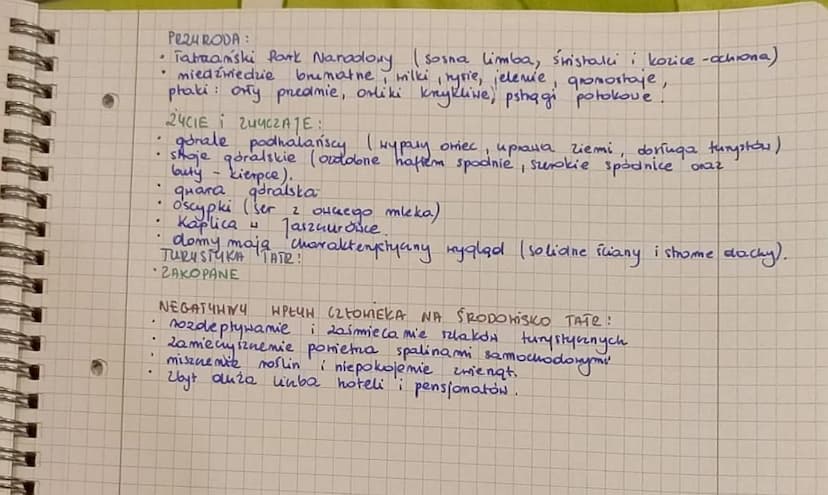 PRZYRODA:
• Tatrzański Park Narodowy (sosna limba, świstaki i kozice - ochrona)
• niedźwiedzie brunatne, wilki, rysie, jelenie, gronostaje,
ptaki: orły przednie, orliki krzykliwe, pstrągi potokowe.
ŻYCIE i ZWYCZAJE:
• górale podhalańscy (wypasy owiec, uprawa ziemi, obsługa turystów)
• stroje góralskie (ozdobne haftem spodnie, szerokie spódnice oraz
buty - kierpce).
• gwara góralska
• oscypki (ser z owczego mleka)
• Kaplica w Jaszczurówce.
• domy mają charakterystyczny wygląd (solidne ściany i strome dachy).
TURYSTYKA TATR:
• ZAKOPANE
NEGATYWNY WPŁYW CZŁOWIEKA NA ŚRODOWISKO TATR:
• rozdeptywanie i zaśmiecanie szlaków turystycznych
• zanieczyszczenie powietrza spalinami samochodowymi
• niszczenie roślin i niepokojenie zwierząt.
• zbyt duża liczba hoteli i pensjonatów.